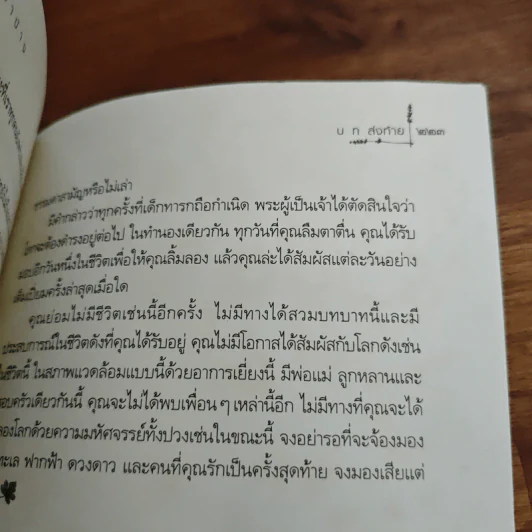 บ ท ส่งท้าย ๒๒๓
ธรรมดาสามัญหรือไม่เล่า
มีคำกล่าวว่าทุกครั้งที่เด็กทารกถือกำเนิด พระผู้เป็นเจ้าได้ตัดสินใจว่า
โลกจะต้องดำรงอยู่ต่อไป ในทำนองเดียวกัน ทุกวันที่คุณลืมตาตื่น คุณได้รับ
มอบอีกวันหนึ่งในชีวิตเพื่อให้คุณลิ้มลอง แล้วคุณล่ะได้สัมผัสแต่ละวันอย่าง
เต็มเปี่ยมครั้งล่าสุดเมื่อใด
คุณย่อมไม่มีชีวิตเช่นนี้อีกครั้ง ไม่มีทางได้สวมบทบาทนี้และมี
ประสบการณ์ในชีวิตดังที่คุณได้รับอยู่ คุณไม่มีโอกาสได้สัมผัสกับโลกดังเช่น
ในชีวิตนี้ ในสภาพแวดล้อมแบบนี้ด้วยอาการเยี่ยงนี้ มีพ่อแม่ ลูกหลานและ
ครอบครัวเดียวกันนี้ คุณจะไม่ได้พบเพื่อนๆ เหล่านี้อีก ไม่มีทางที่คุณจะได้
มองโลกด้วยความมหัศจรรย์ทั้งปวงเช่นในขณะนี้ จงอย่ารอที่จะจ้องมอง
ทะเล ฟากฟ้า ดวงดาว และคนที่คุณรักเป็นครั้งสุดท้าย จงมองเสียแต่